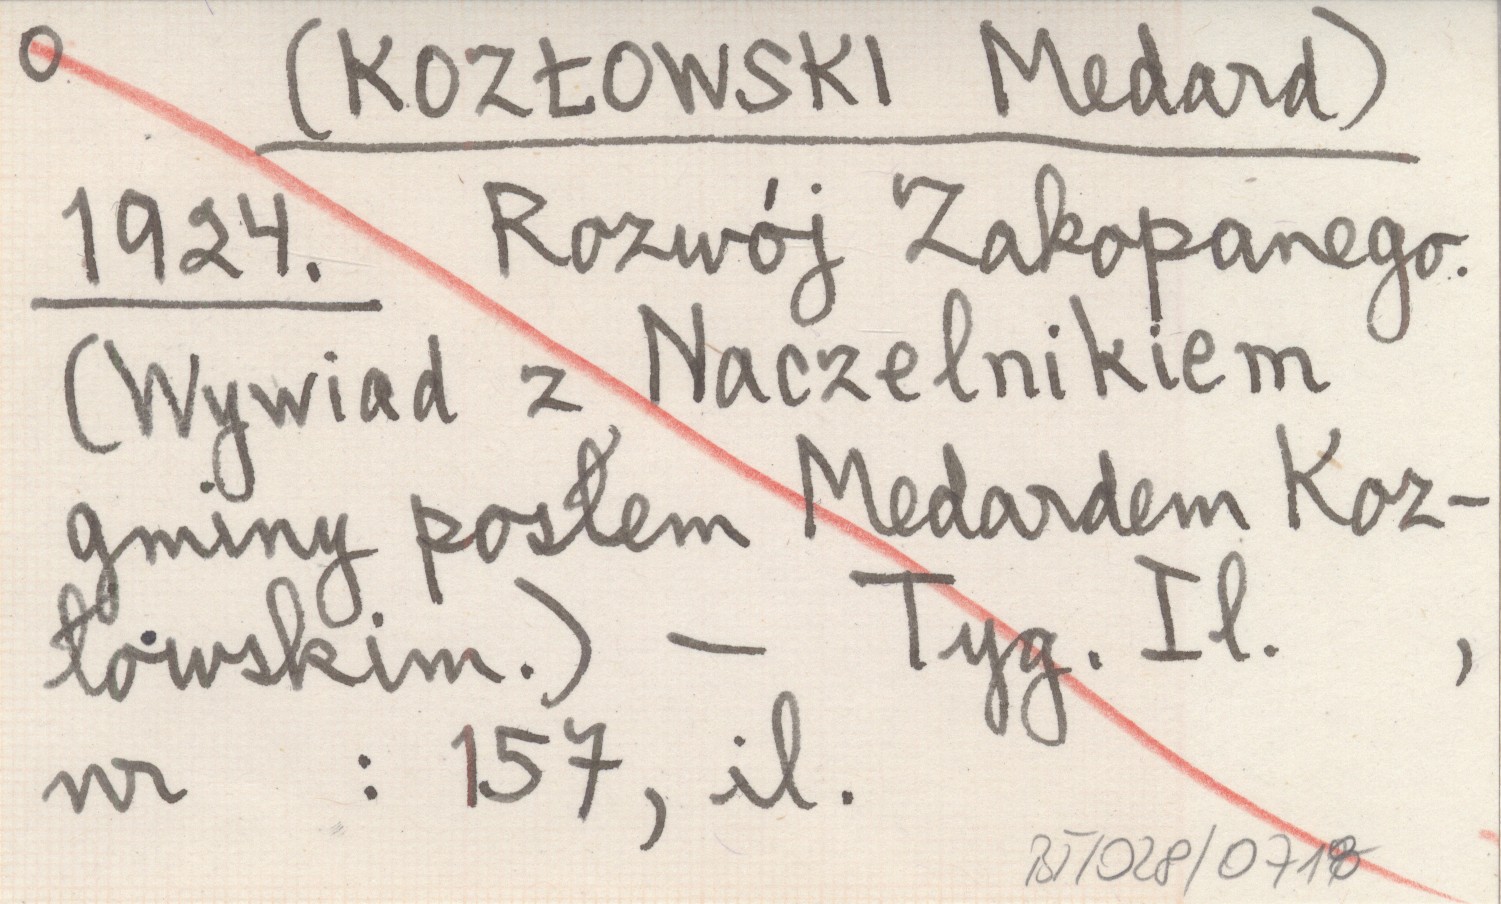 O (KOZŁOWSKI Medard)
1924. Rozwój Zakopanego.
(Wywiad z Naczelnikiem
gminy posłem Medardem Koz-
łowskim.) — Tyg. Il. ,
nr : 157, il.
BT/028/0718